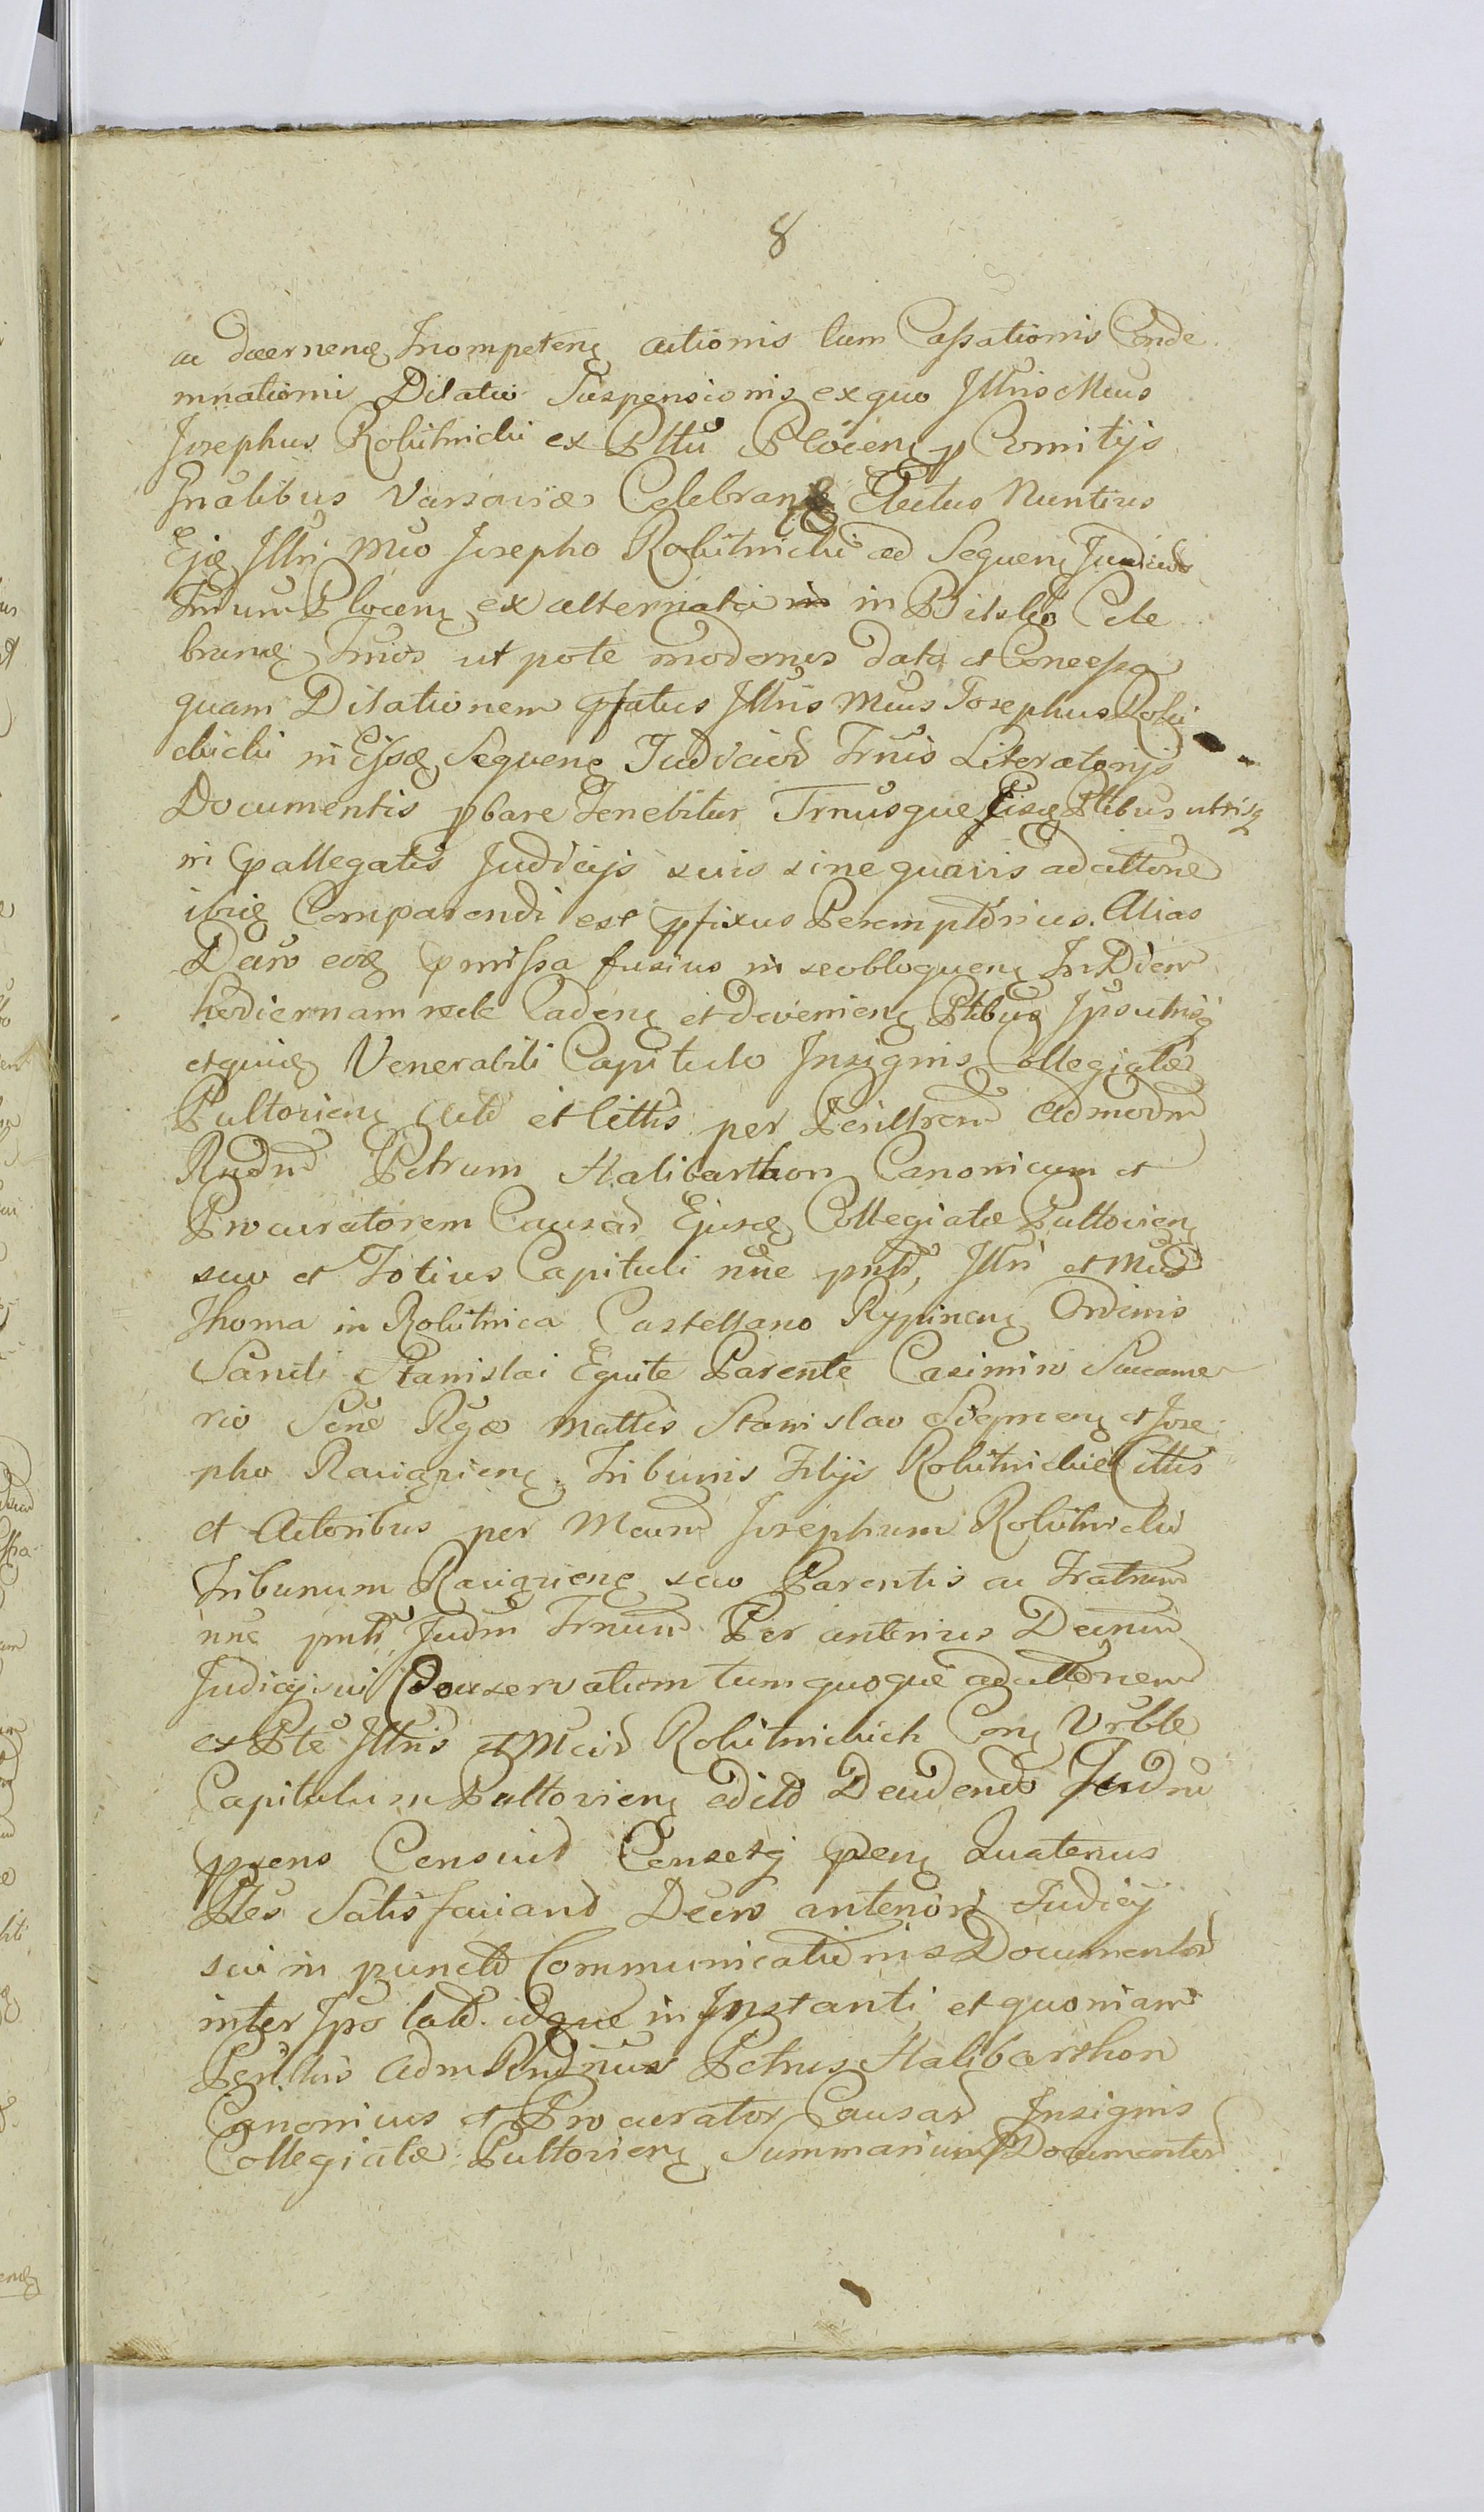 8
ac decernen Incompeten actionis tum Cassationis Conde
mnationi Dilatio Suspensionis ex quo Illris Mcus
Josephus Robutnicki ex Pltu Plocen p Comitijs
Gnalibus Varsaviæ Celebran Electus Nuntius
Ejq Illri Mco Josepho Robutnicki ad Sequen Judicior
Trnum Plocen ex alternata in Pilsko Cele
bran Trnor ut pote modernis data et Concessa
quam Dilationem pfatus Illris Mcus Josephus Robu
tnicki in Ejsq Sequen Judicior Trnis Literatorijs
Documentis pbare Tenebitur Trnusque Eisq Ptibus utrisq
in pallegatis Judicijs suis sine quavis adcittone
ibiq Comparendi est pfixus Peremptorius. Alias
Decro eoq pmissa fusius in se obloquen In Diem
hodiernam recte Caden et devenien Ptibus Ipsis utrisq
et quiq Venerabili Capitulo Insignis Collegiatæ
Pultovien Acto et Cittis per Perillrem Admodm
Rndum Petrum Haliburthon Canonicum et
Procuratorem Causar Ejusq Collegiatæ Pultovien
suo et Totius Capituli nne pntr, Illri et Mco
Thoma in Robutnica Castellano Rypinen Ordinis
Sancti Stanislai Equite Parente Casimiro Succame
rio Sene Rgæ Mattis Stanislao Siepricen et Jose
pho Racigzien Tribunis Filijs Robutnickie Cittis
et Actoribus per Mcum Josephum Robutnicki
Tribunum Racigzien suo Parentis ac Fratrum
nne pntr Judm Trnum Per anterius Decrum
Judicij sui Conservatum tum quoque adcittonem
ex Pte Illris et Mcor Robutnickich Con Vrble
Capitulum Pultovien edito Decidendo Judm
psens Censuit Censetq pden Quatenus
Ptes Satisfaciand Decro anteriori Judicij
sui in puncto Communicationis Documentor
inter Ipso lato. idque in Instanti, et quoniam
Perillris Adm Rndnus Petrus Haliburthon
Canonicus et Procurator Causar Insignis
Collegiatæ Pultovien Summarium Documentor